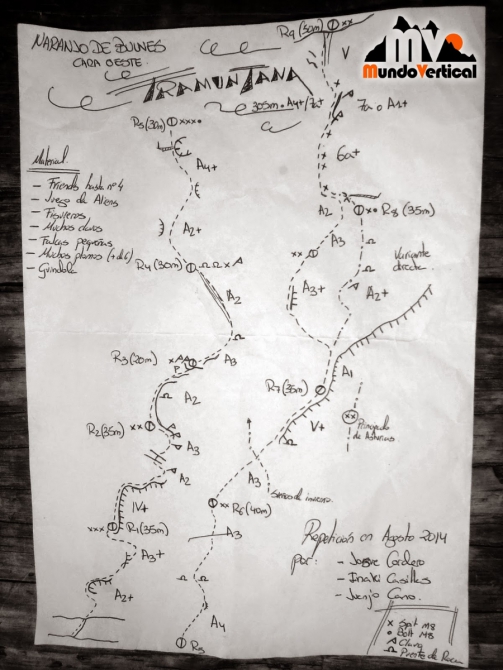 NARANJO DE BULNES
CARA OESTE.
TRAMUNTANA
305m. A4+/7a+
MundoVertical
Material
- Friends hasta nº4
- Juego de Aliens
- Fisureros
- Muchos clavos
- Muchos plomos
- Guindola
R5 (30m) xxxx•
A4+
A2+
R4 (30m)
A2
A3
R3 (20m)
P
A2
R2 (35m) xx
A3
A2
IV+
xxx R1 (35m)
A3+
A2+
R9 (50m) xx
V
7a o A1+
6a+
A2
x• R8 (35m)
A3
xx
A3+
A2+
Variante
directa.
A1
R7 (35m)
V+
xx
Principado
de Asturias
A3
Sueños de invierno.
xx R6 (40m)
A3
A4
R5
Repetición en Agosto 2014
por: - Josue Cordero
- Iñaki Casillas
- Juanjo Cano.
x Spit M8
• Bolt M8
Clavo
Puente de Roca